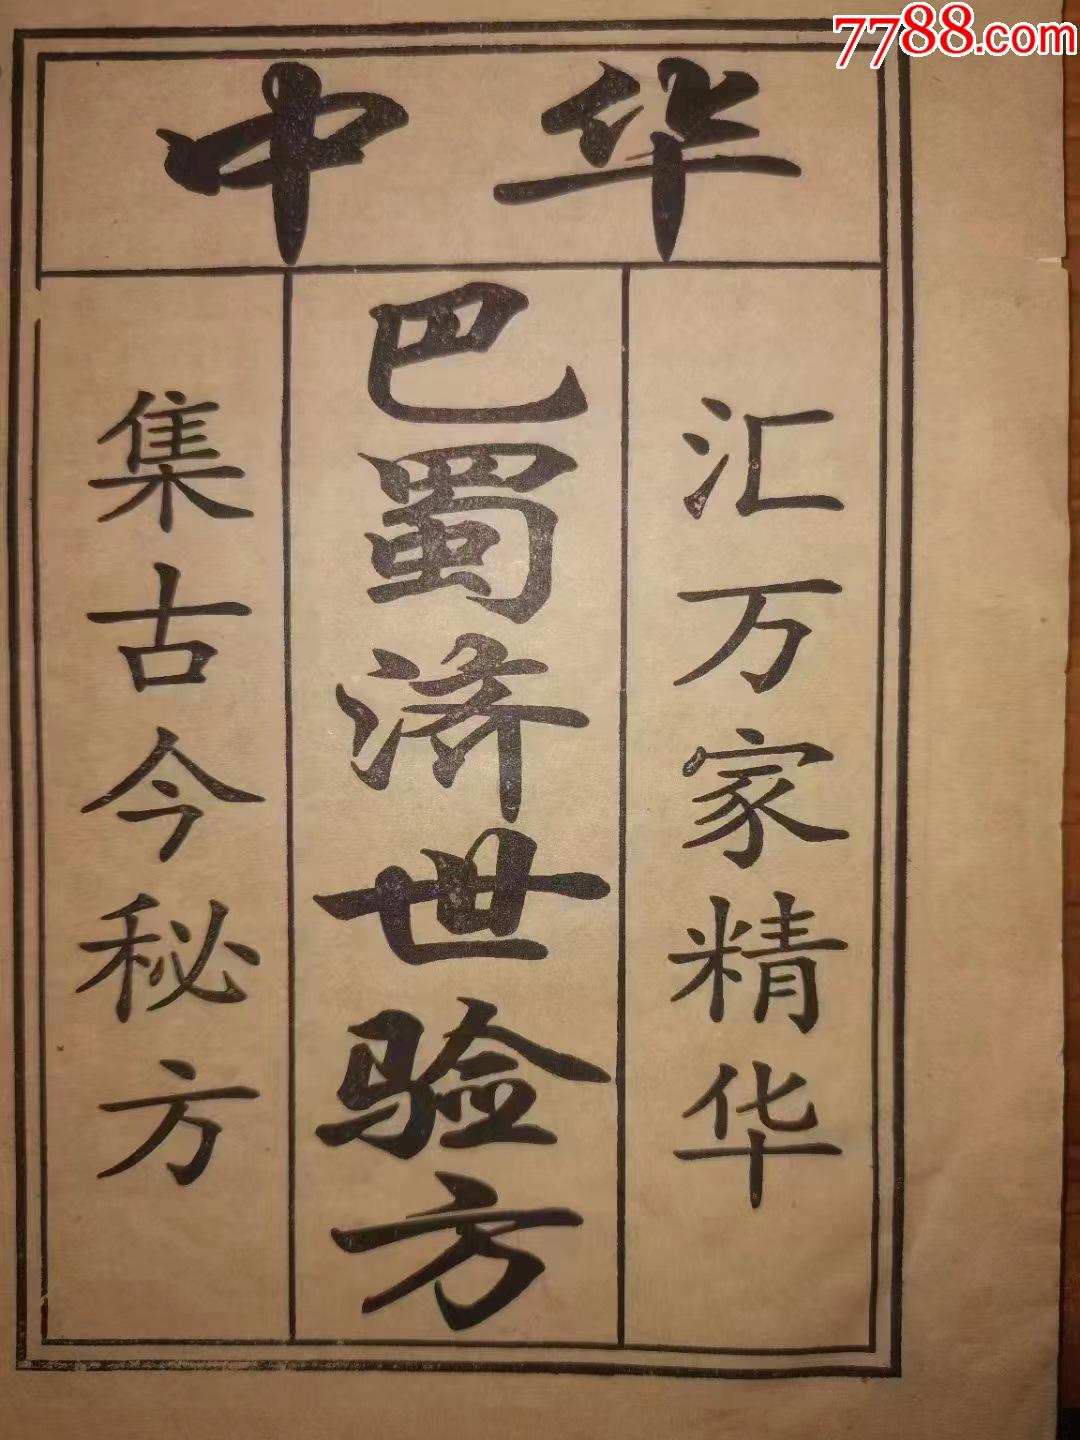 7788.com
中华
汇万家精华
巴蜀济世验方
集古今秘方